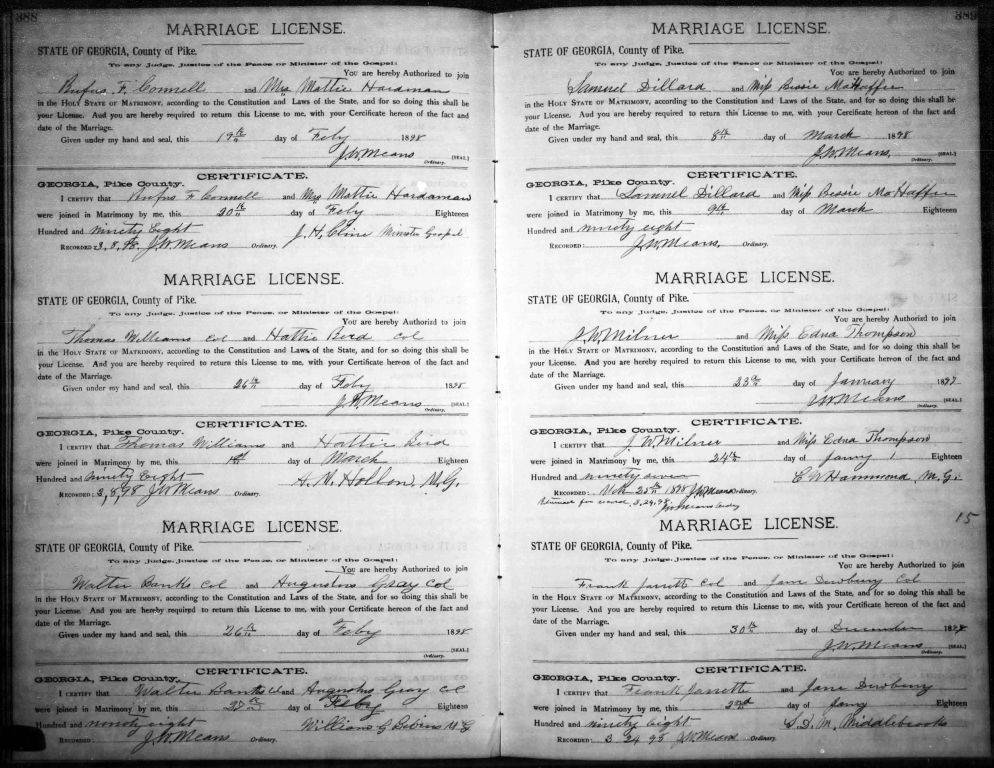 388
MARRIAGE LICENSE.
STATE OF GEORGIA, County of Pike.
To any Judge, Justice of the Peace or Minister of the Gospel:
You are hereby Authorized to join
Rufus F. Connell and Mrs Mattie Hardaman
in the HOLY STATE OF MATRIMONY, according to the Constitution and Laws of the State, and for so doing this shall be
your License. And you are hereby required to return this License to me, with your Certificate hereon of the fact and
date of the Marriage.
Given under my hand and seal, this 19th day of Feby 1898
J.W. Means [SEAL]
Ordinary.
CERTIFICATE.
GEORGIA, Pike County.
I CERTIFY that Rufus F Connell and Mrs Mattie Hardaman
were joined in Matrimony by me, this 20th day of Feby Eighteen
Hundred and ninety Eight J. H. Cline Minister Gospel
RECORDED: 3, 8, 98 J.W. Means Ordinary.
MARRIAGE LICENSE.
STATE OF GEORGIA, County of Pike.
To any Judge, Justice of the Peace, or Minister of the Gospel:
You are hereby Authorized to join
Thomas Williams Col and Hattie Bird Col
in the HOLY STATE OF MATRIMONY, according to the Constitution and Laws of the State, and for so doing this shall be
your License. And you are hereby required to return this License to me, with your Certificate hereon of the fact and
date of the Marriage.
Given under my hand and seal, this 26th day of Feby 1898
J.W. Means [SEAL]
Ordinary.
CERTIFICATE.
GEORGIA, Pike County.
I CERTIFY that Thomas Williams and Hattie Bird
were joined in Matrimony by me, this 1st day of March Eighteen
Hundred and ninety Eight M.G.
RECORDED: 3, 8, 98 J.W. Means Ordinary.
MARRIAGE LICENSE.
STATE OF GEORGIA, County of Pike.
To any Judge, Justice of the Peace, or Minister of the Gospel:
You are hereby Authorized to join
Walter Banks Col and Augustus Gray Col
in the HOLY STATE OF MATRIMONY, according to the Constitution and Laws of the State, and for so doing this shall be
your License. And you are hereby required to return this License to me, with your Certificate hereon of the fact and
date of the Marriage.
Given under my hand and seal, this 26th day of Feby 1898
[SEAL]
Ordinary.
CERTIFICATE.
GEORGIA, Pike County.
I CERTIFY that Walter Banks Col and Augustus Gray Col
were joined in Matrimony by me, this 27th day of Feby Eighteen
Hundred and ninety eight William G M G
RECORDED: J.W. Means Ordinary.
389
MARRIAGE LICENSE.
STATE OF GEORGIA, County of Pike.
To any Judge, Justice of the Peace or Minister of the Gospel:
You are hereby Authorized to join
Samuel Dillard and Miss Bessie MaHaffie
in the HOLY STATE OF MATRIMONY, according to the Constitution and Laws of the State, and for so doing this shall be
your License. And you are hereby required to return this License to me, with your Certificate hereon of the fact and
date of the Marriage.
Given under my hand and seal, this 8th day of March 1898
J.W. Means, [SEAL]
Ordinary.
CERTIFICATE.
GEORGIA, Pike County.
I CERTIFY that Samuel Dillard and Miss Bessie MaHaffie
were joined in Matrimony by me, this 9th day of March Eighteen
Hundred and ninety eight
RECORDED: J.W. Means, Ordinary.
MARRIAGE LICENSE.
STATE OF GEORGIA, County of Pike.
To any Judge, Justice of the Peace, or Minister of the Gospel:
You are hereby Authorized to join
J.W. Milner and Miss Edna Thompson
in the HOLY STATE OF MATRIMONY, according to the Constitution and Laws of the State, and for so doing this shall be
your License. And you are hereby required to return this License to me, with your Certificate hereon of the fact and
date of the Marriage.
Given under my hand and seal, this 23rd day of January 1897
J.W. Means [SEAL]
Ordinary.
CERTIFICATE.
GEORGIA, Pike County.
I CERTIFY that J. W. Milner and Miss Edna Thompson
were joined in Matrimony by me, this 24th day of Janry Eighteen
Hundred and ninety seven C W Hammond M.G.
RECORDED: Mch 25th 1898 J.W. Means Ordinary.
Returned for record 3,24,98
J.W. Means Ordry
15
MARRIAGE LICENSE.
STATE OF GEORGIA, County of Pike.
To any Judge, Justice of the Peace, or Minister of the Gospel:
You are hereby Authorized to join
Frank Jarrett Col and Jane Dewberry Col
in the HOLY STATE OF MATRIMONY, according to the Constitution and Laws of the State, and for so doing this shall be
your License. And you are hereby required to return this License to me, with your Certificate hereon of the fact and
date of the Marriage.
Given under my hand and seal, this 30th day of December
J.W. Means [SEAL]
Ordinary.
CERTIFICATE.
GEORGIA, Pike County.
I CERTIFY that Frank Jarrett and Jane Dewberry
were joined in Matrimony by me, this 2nd day of Janry Eighteen
Hundred and ninety eight S. D. M. Middlebrooks
RECORDED: 3 24 98 J.W. Means Ordinary.